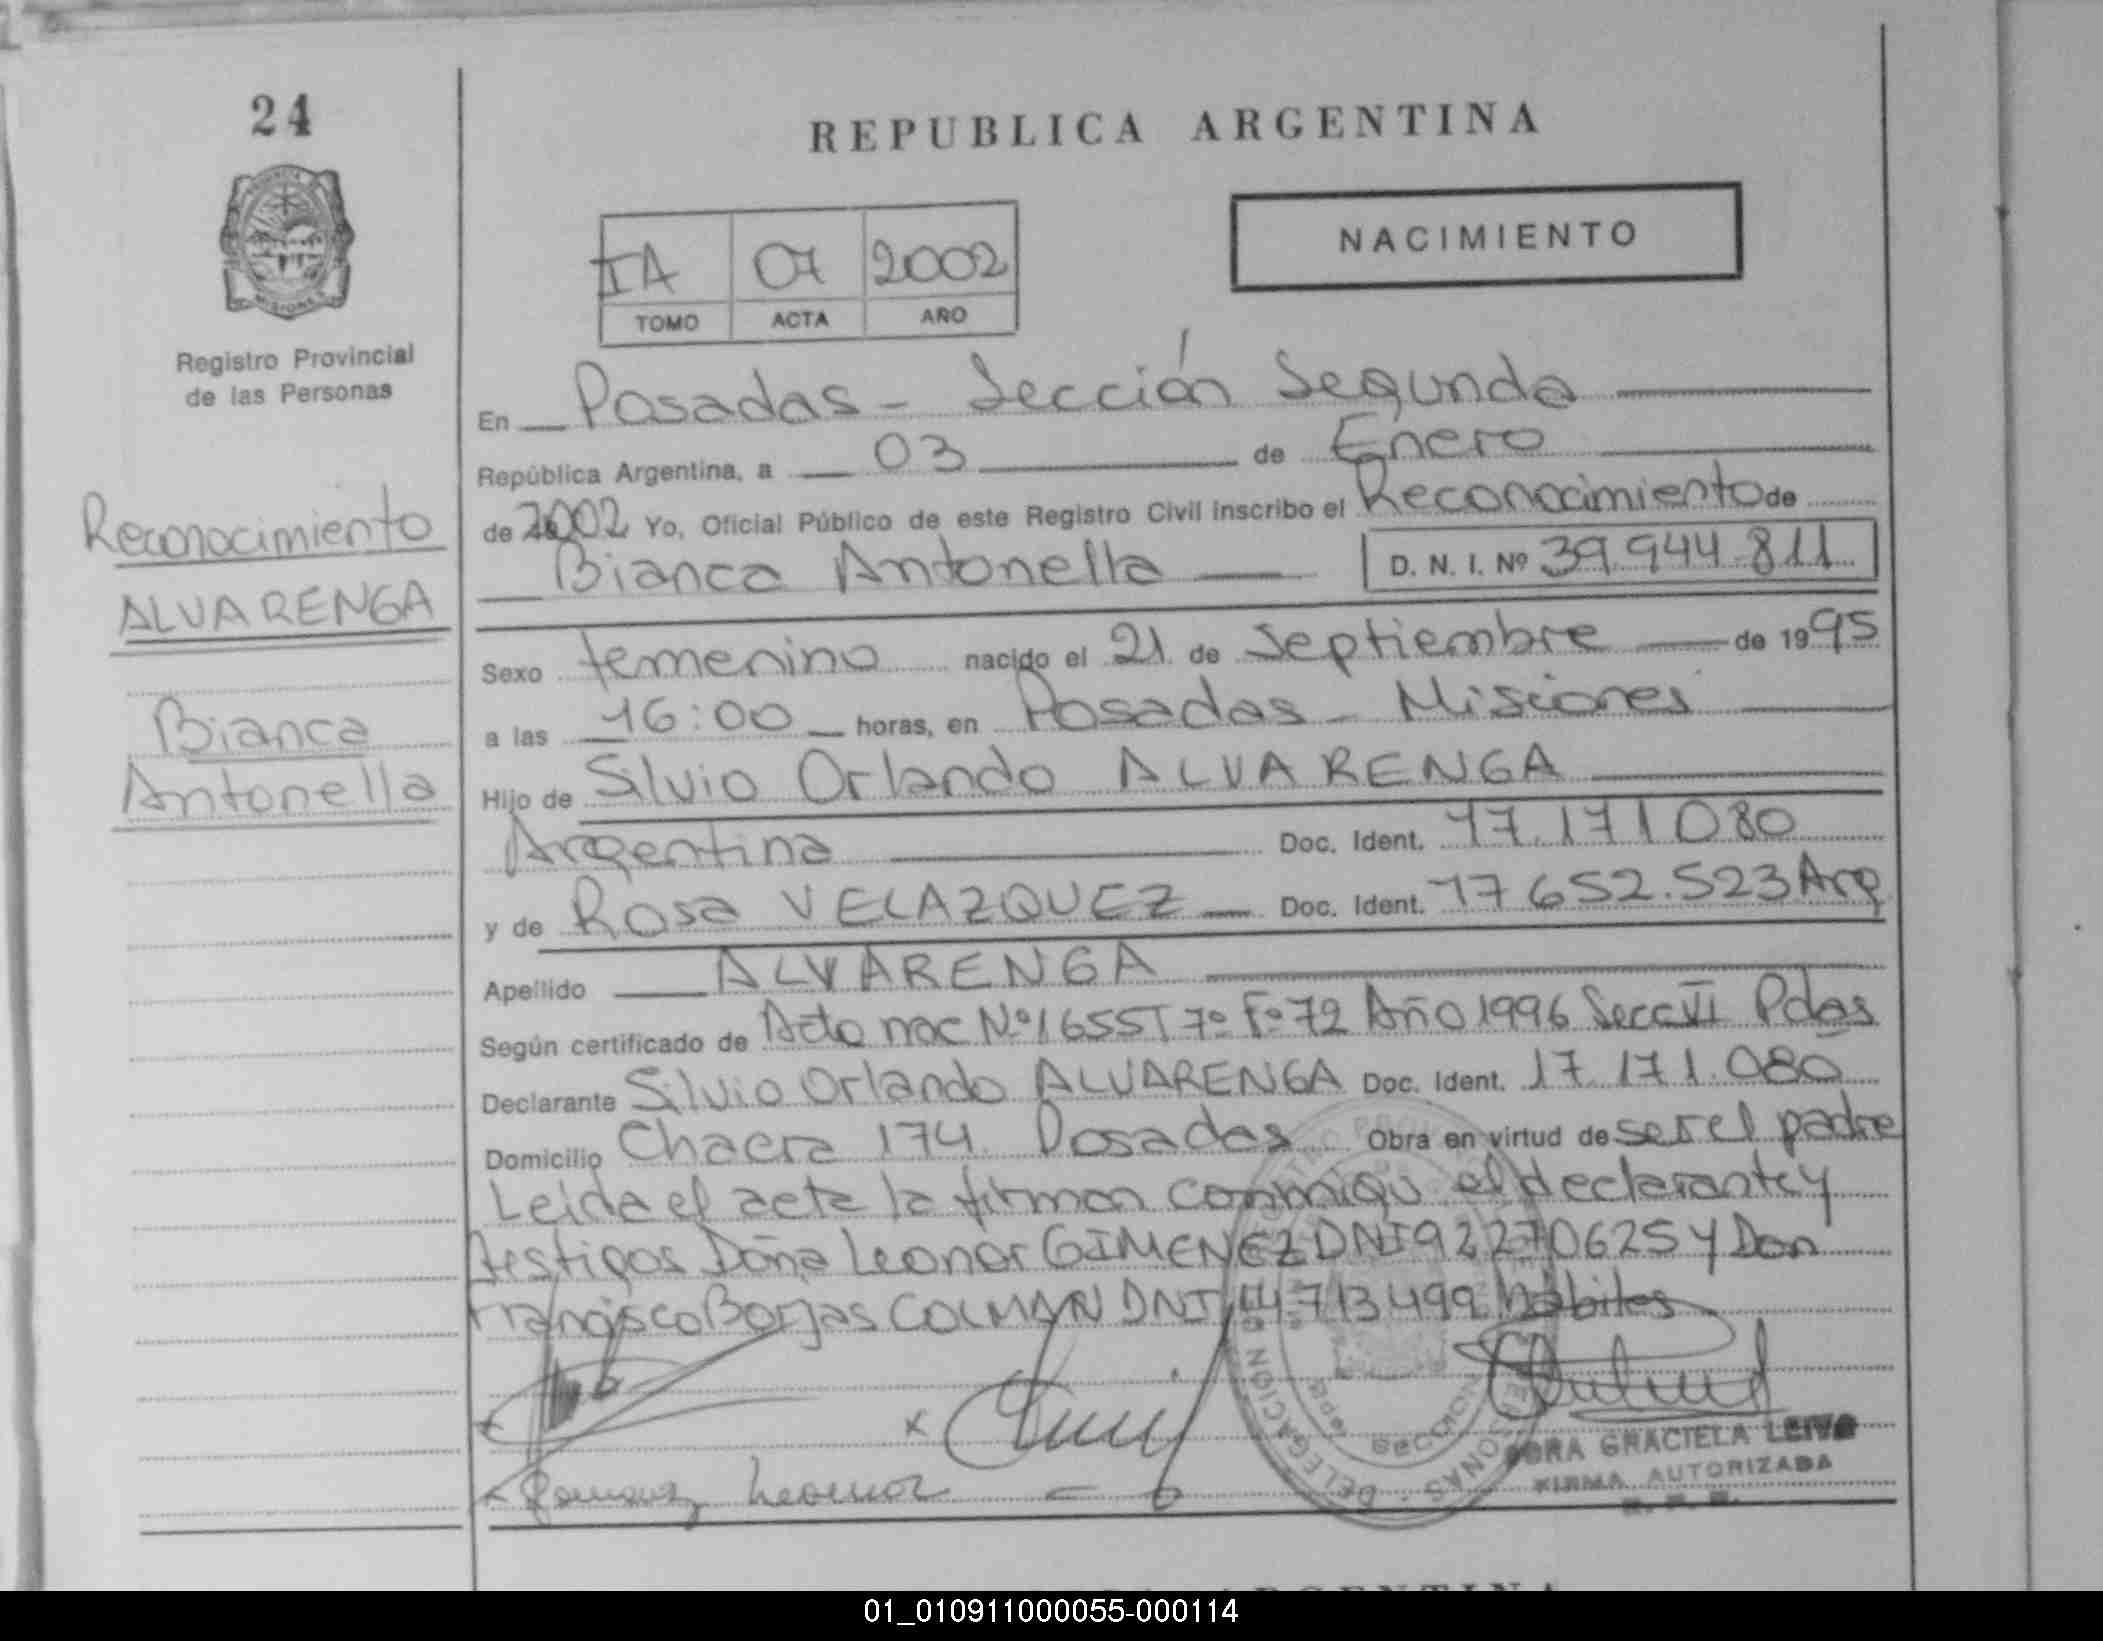 24
PROVINCIA DE
MISIONES
Registro Provincial
de las Personas
Reconocimiento
ALVARENGA
Bianca
Antonella
REPUBLICA ARGENTINA
IA 07 2002
TOMO ACTA AÑO
NACIMIENTO
En Posadas - Sección Segunda
República Argentina, a 03 de Enero
de 2002 Yo, Oficial Público de este Registro Civil inscribo el Reconocimiento de
Bianca Antonella D. N. I. Nº 39.944.811
Sexo femenino nacido el 21 de Septiembre de 1995
a las 16:00 horas, en Posadas - Misiones
Hijo de Silvio Orlando ALVARENGA
Argentina Doc. Ident. 17.171080
y de Rosa VELAZQUEZ Doc. Ident. 17652.523 Arg
Apellido ALVARENGA
Según certificado de Acta nac Nº 1655 T 7º Fº 72 Año 1996 Secc VI Pdas
Declarante Silvio Orlando ALVARENGA Doc. Ident. 17.171.080
Domicilio Chacra 174 Posadas Obra en virtud de ser el padre
Leida el acta la firman conmigo el declarante y
testigos Doña Leonor GIMENEZ DNI 92270625 y Don
Francisco Borjas COLMAN DNI 14713499 hábiles
Leonor
DELEGACION
SECCION
GRACIELA LEIVA
FIRMA AUTORIZADA
01_010911000055-000114